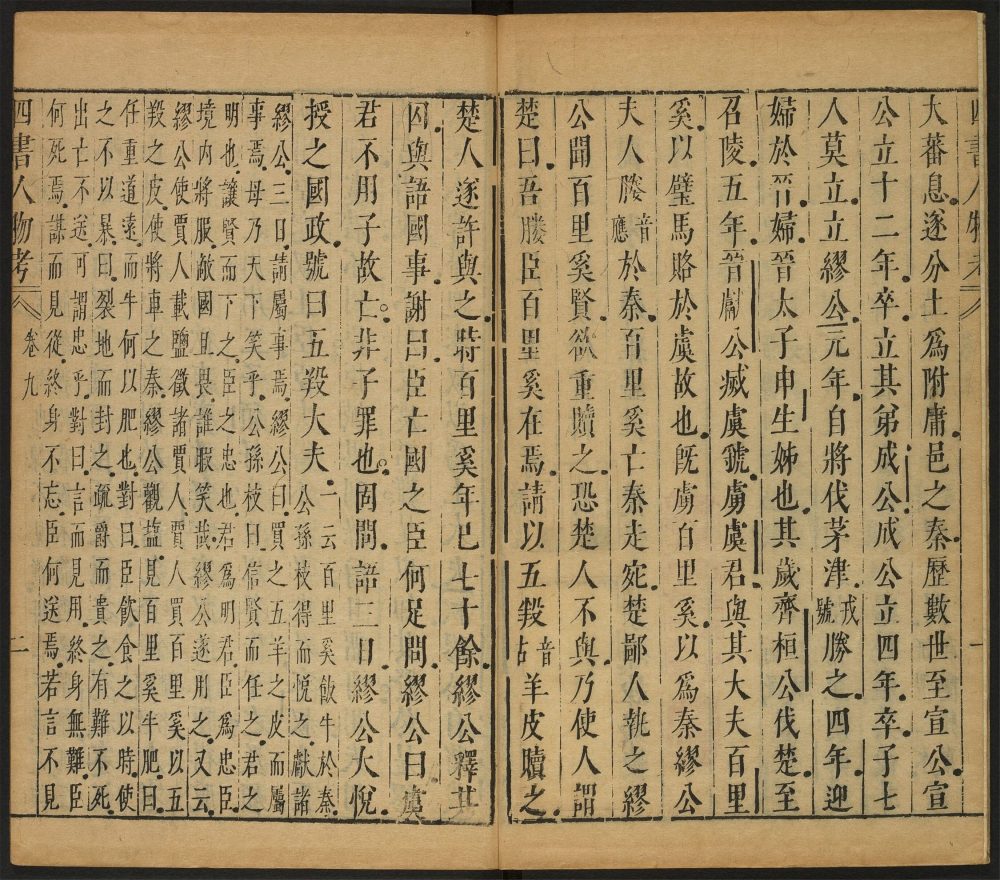 四書人物考
一
大蕃息遂分土爲附庸邑之秦歷數世至宣公宣
公立十二年卒立其弟成公成公立四年卒子七
人莫立立繆公元年自將伐茅津戎號勝之四年迎
婦於晉婦晉太子申生姊也其歲齊桓公伐楚至
召陵五年晉獻公滅虞虢虜虞君與其大夫百里
奚以璧馬賂於虞故也旣虜百里奚以爲秦繆公
夫人媵音應於秦百里奚亡秦走宛楚鄙人執之繆
公聞百里奚賢欲重贖之恐楚人不與乃使人謂
楚曰吾媵臣百里奚在焉請以五羖音古羊皮贖之
楚人遂許與之時百里奚年巳七十餘繆公釋其
囚與語國事謝曰臣亡國之臣何足問繆公曰虞
君不用子故亡非子罪也固問語三日繆公大悅
授之國政號曰五羖大夫一云百里奚飯牛於秦
公孫枝得而悅之獻諸
繆公三日請屬事焉繆公曰買之五羊之皮而屬
事焉毋乃天下笑乎公孫枝曰信賢而任之君之
明也讓賢而下之臣之忠也君爲明君臣爲忠臣
境內將服敵國且畏誰暇笑哉繆公遂用之又云
繆公使賈人載鹽徵諸賈人賈人買百里奚以五
羖之皮使將車之秦繆公觀鹽見百里奚牛肥曰
任重道遠而牛何以肥也對曰臣飲食之以時使
之不以暴曰裂地而封之疏爵而貴之有難不死
出亡不送可謂忠乎對曰言而見用終身無難臣
何死焉謀而見從終身不忘臣何送焉若言不見
四書人物考
卷九
二